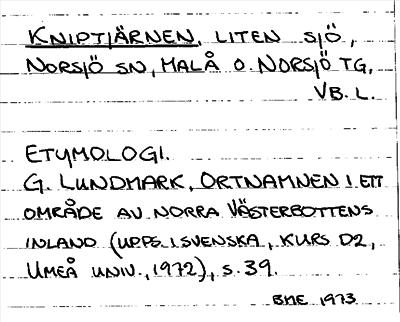 KNIPTJÄRNEN, LITEN SJÖ,
NORSJÖ SN, MALÅ O. NORSJÖ TG,
VB. L.
ETYMOLOGI.
G. LUNDMARK, ORTNAMNEN I ETT
OMRÅDE AV NORRA VÄSTERBOTTENS
INLAND (UPPS. I SVENSKA, KURS D2,
UMEÅ UNIV., 1972), S. 39.
BME 1973